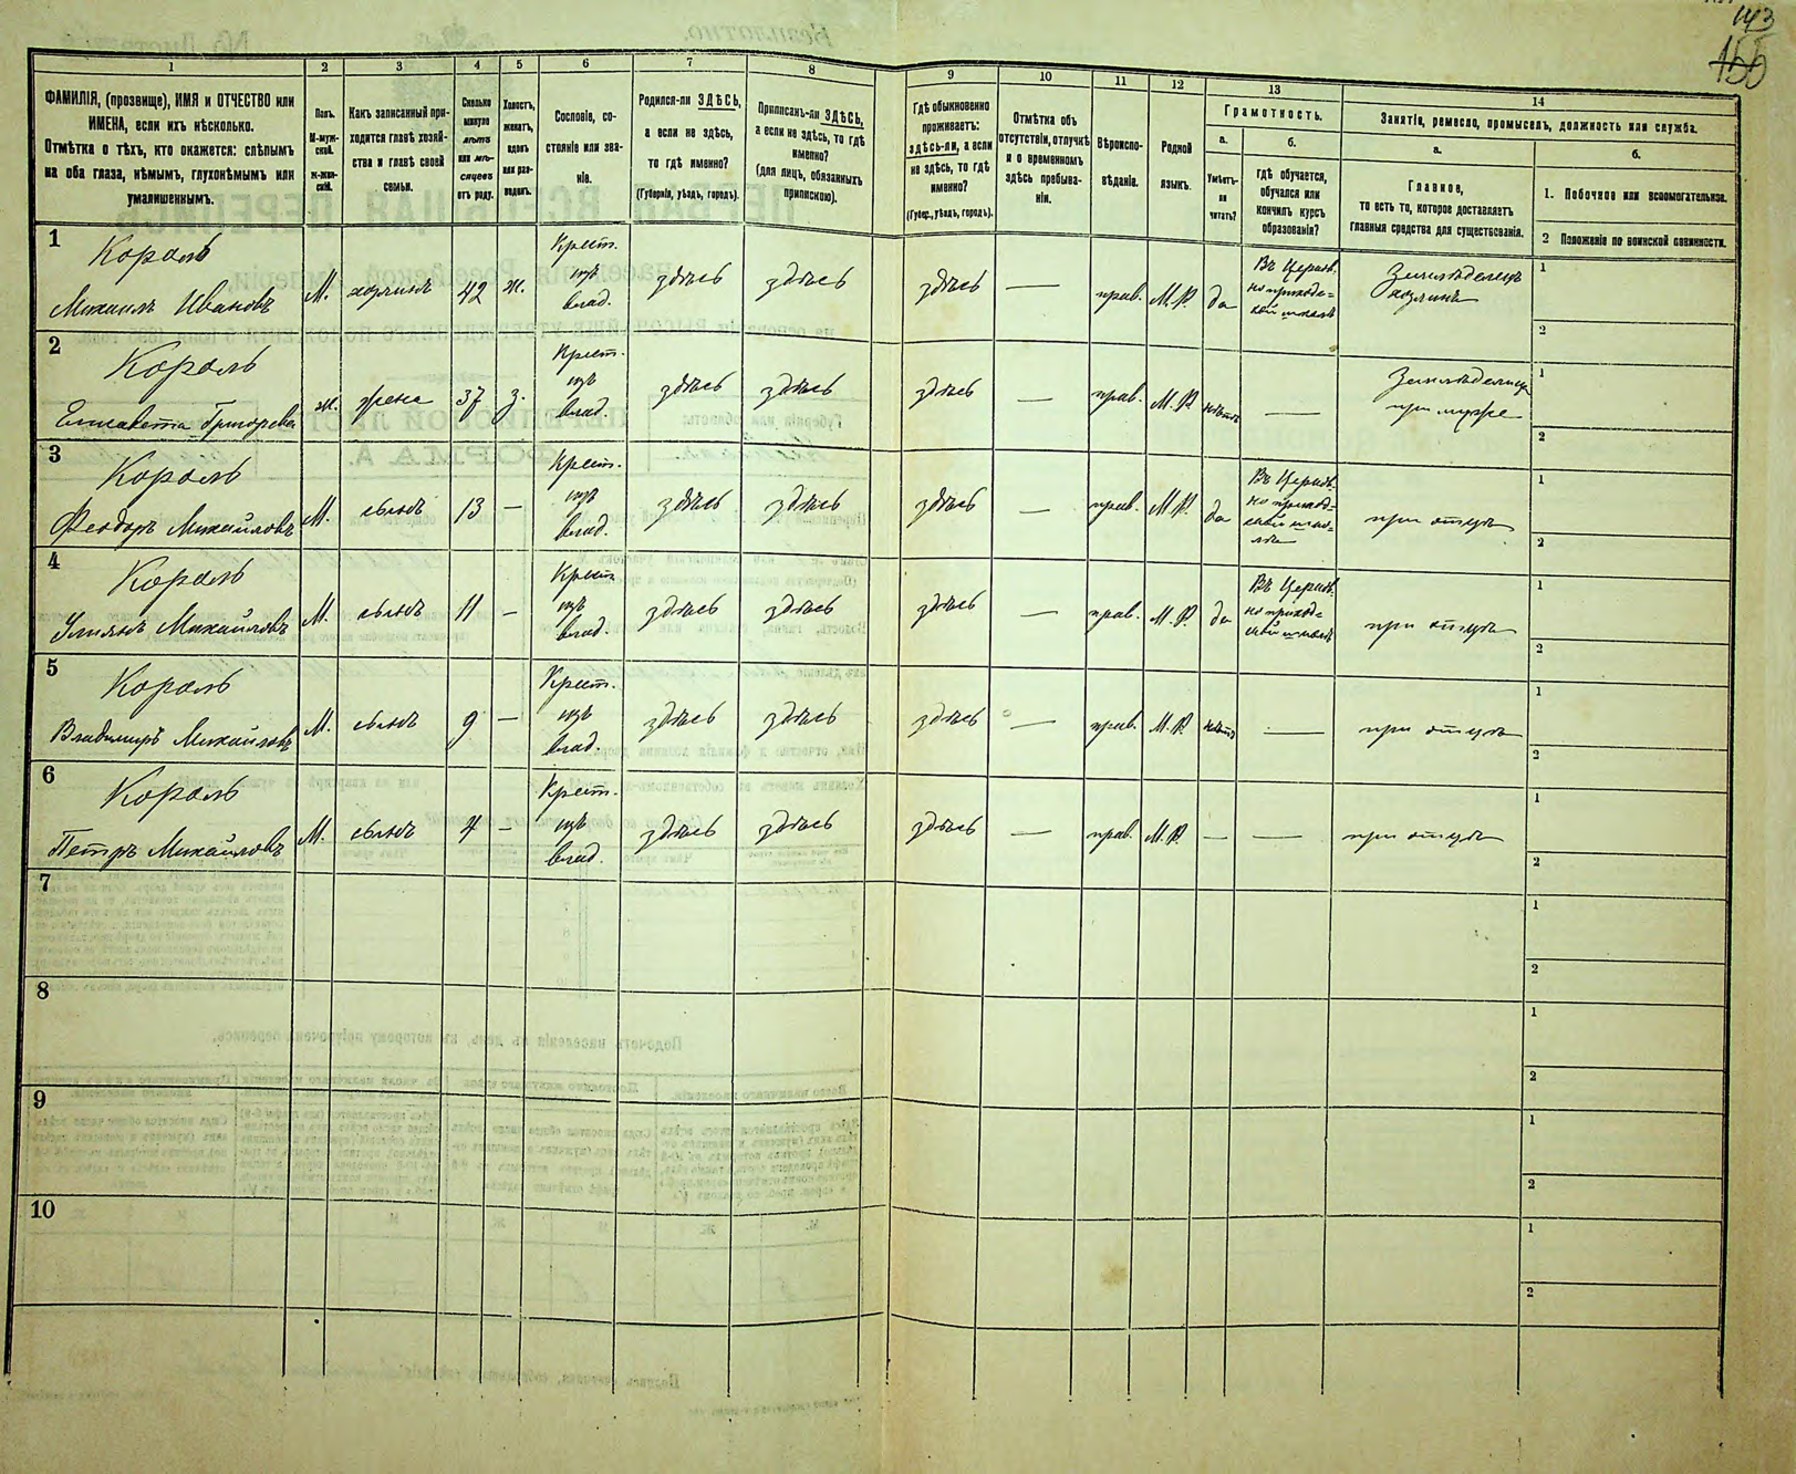 143
155
1
2
3
4
5
6
7
8
9
10
11
12
13
14
ФАМИЛІЯ, (прозвище), ИМЯ и ОТЧЕСТВО или
ИМЕНА, если ихъ нѣсколько.
Отмѣтка о тѣхъ, кто окажется: слѣпымъ
на оба глаза, нѣмымъ, глухонѣмымъ или
умалишеннымъ.
Полъ.
М-муж-
ской.
Ж-жен-
скій.
Какъ записанный при-
ходится главѣ хозяй-
ства и главѣ своей
семьи.
Сколько
минуло
лѣтъ
или мѣ-
сяцевъ
отъ роду.
Холостъ,
женатъ,
вдовъ
или раз-
веденъ.
Сословіе, со-
стояніе или зва-
ніе.
Родился-ли ЗДѢСЬ,
а если не здѣсь,
то гдѣ именно?
(Губернія, уѣздъ, городъ).
Приписанъ-ли ЗДѢСЬ,
а если не здѣсь, то гдѣ
именно?
(для лицъ, обязанныхъ
припискою).
Гдѣ обыкновенно
проживаетъ:
здѣсь-ли, а если
не здѣсь, то гдѣ
именно?
(Губер., уѣздъ, городъ).
Отмѣтка объ
отсутствіи, отлучкѣ
и о временномъ
здѣсь пребыва-
ніи.
Вѣроиспо-
вѣданіе.
Родной
языкъ.
Грамотность.
а.
Умѣетъ-
ли
читать?
б.
Гдѣ обучается,
обучался или
кончилъ курсъ
образованія?
Занятіе, ремесло, промыселъ, должность или служба.
а.
Главное,
то есть то, которое доставляетъ
главныя средства для существованія.
б.
1. Побочное или вспомогательное.
2 Положеніе по воинской повинности.
1
Король
Михаилъ Ивановъ
М.
хозяинъ
42
ж.
Крест.
изъ
влад.
здѣсь
здѣсь
здѣсь
—
прав.
М.Р.
да
Въ Церков-
но приход-
ской школѣ
Земледѣлецъ
хозяинъ
1
2
2
Король
Елисавета Григорьева
ж.
жена
37
з.
Крест.
изъ
влад.
здѣсь
здѣсь
здѣсь
—
прав.
М.Р.
нѣтъ
—
Земледѣлица
при мужѣ
1
2
3
Король
Феодоръ Михайловъ
М.
сынъ
13
—
Крест.
изъ
влад.
здѣсь
здѣсь
здѣсь
—
прав.
М.Р.
да
Въ Церков-
но приход-
ской шко-
лѣ
при отцѣ
1
2
4
Король
Ульянъ Михайловъ
М.
сынъ
11
—
Крест.
изъ
влад.
здѣсь
здѣсь
здѣсь
—
прав.
М.Р.
да
Въ Церков-
но приход-
ской школѣ
при отцѣ
1
2
5
Король
Владимиръ Михайловъ
М.
сынъ
9
—
Крест.
изъ
влад.
здѣсь
здѣсь
здѣсь
—
прав.
М.Р.
нѣтъ
—
при отцѣ
1
2
6
Король
Петръ Михайловъ
М.
сынъ
4
—
Крест.
изъ
влад.
здѣсь
здѣсь
здѣсь
—
прав.
М.Р.
—
—
при отцѣ
1
2
7
1
2
8
1
2
9
1
2
10
1
2